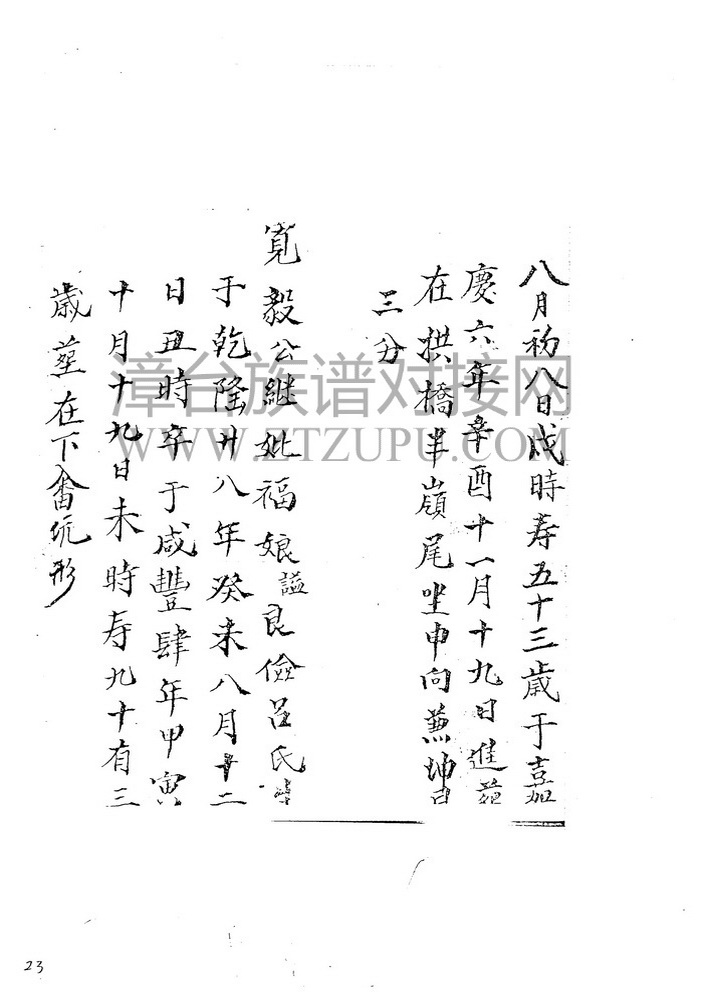 八月初八日戌時寿五十三歲于嘉
慶六年辛酉十一月十九日進葬
在拱橋半嶺尾坐申向兼坤
三分
寬毅公継妣福娘諡良儉呂氏
于乾隆廿八年癸未八月十二
日丑時卒于咸豐肆年甲寅
十月十九日未時寿九十有三
歲塟在下畬坑形
漳台族谱对接网
WWW.ZTZUPU.COM
23